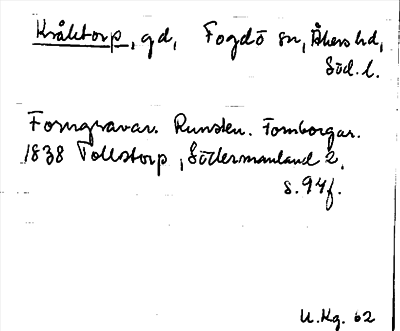 Kråktorp, gd, Fogdö sn, Åkers hd,
Söd. l.
Forngravar. Runsten. Fornborgar.
1838 Tollstorp, Södermanland 2,
s. 94 f.
U. Kg. 62